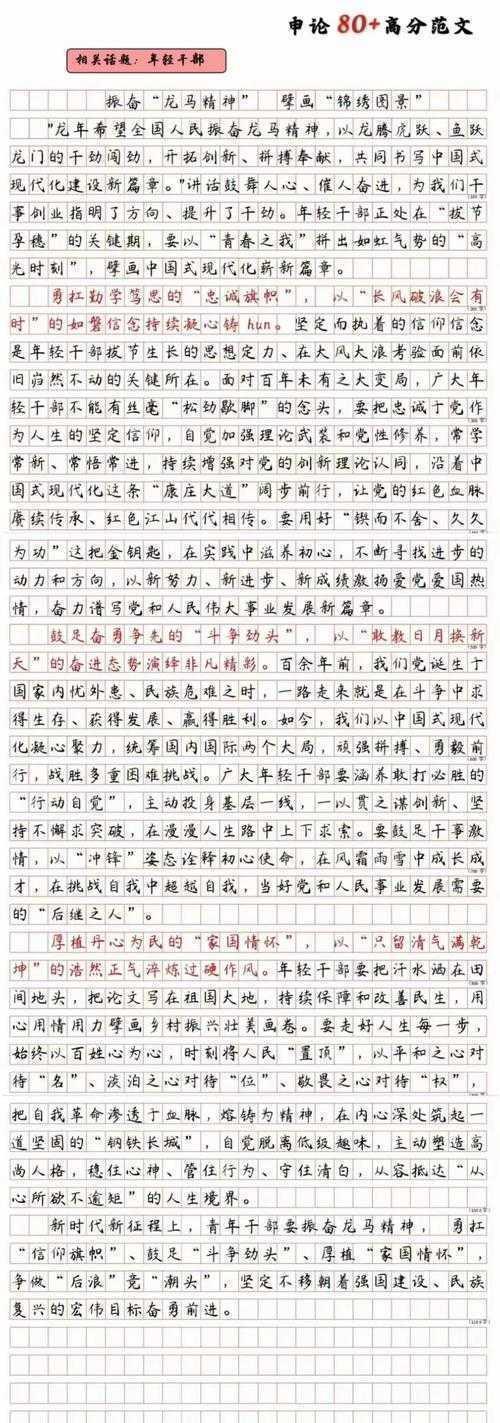 申论80+高分范文
相关话题：年轻干部
振奋“龙马精神” 擘画“锦绣图景”
“龙年希望全国人民振奋龙马精神，以龙腾虎跃、鱼跃
龙门的干劲闯劲，开拓创新、拼搏奉献，共同书写中国式
现代化建设新篇章。”讲话鼓舞人心、催人奋进，为我们干
事创业指明了方向、提升了干劲。年轻干部正处在“拔节
孕穗”的关键期，要以“青春之我”拼出如虹气势的“高
光时刻”，擘画中国式现代化崭新篇章。
勇扛勤学笃思的“忠诚旗帜”，以“长风破浪会有
时”的如磐信念持续凝心铸hun。坚定而执着的信仰信念
是年轻干部拔节生长的思想定力、在大风大浪考验面前依
旧岿然不动的关键所在。面对百年未有之大变局，广大年
轻干部不能有丝毫“松劲歇脚”的念头，要把忠诚于党作
为人生的坚定信仰，自觉加强理论武装和党性修养，常学
常新、常悟常进，持续增强对党的创新理论认同，沿着中
国式现代化这条“康庄大道”阔步前行，让党的红色血脉
赓续传承、红色江山代代相传。要用好“锲而不舍、久久
为功”这把金钥匙，在实践中滋养初心，不断寻找进步的
动力和方向，以新努力、新进步、新成绩激扬爱党爱国热
情，奋力谱写党和人民伟大事业发展新篇章。
鼓足奋勇争先的“斗争劲头”，以“敢教日月换新
天”的奋进态势演绎非凡精彩。百余年前，我们党诞生于
国家内忧外患、民族危难之时，一路走来就是在斗争中求
得生存、获得发展、赢得胜利。如今，我们以中国式现代
化凝心聚力，统筹国内国际两个大局，顽强拼搏、勇毅前
行，战胜多重困难挑战。广大年轻干部要涵养敢打必胜的
“行动自觉”，主动投身基层一线，一以贯之谋创新、坚
持不懈求突破，在漫漫人生路中上下求索。要鼓足干事激
情，以“冲锋”姿态诠释初心使命，在风霜雨雪中成长成
才，在挑战自我中超越自我，当好党和人民事业发展需要
的“后继之人”。
厚植丹心为民的“家国情怀”，以“只留清气满乾
坤”的浩然正气淬炼过硬作风。年轻干部要把汗水洒在田
间地头，把论文写在祖国大地，持续保障和改善民生，用
心用情用力擘画乡村振兴壮美画卷。要走好人生每一步，
始终以百姓心为心，时刻将人民“置顶”，以平和之心对
待“名”、淡泊之心对待“位”、敬畏之心对待“权”，
把自我革命渗透于血脉，熔铸为精神，在内心深处筑起一
道坚固的“钢铁长城”，自觉脱离低级趣味，主动塑造高
尚人格，稳住心神、管住行为、守住清白，从容抵达“从
心所欲不逾矩”的人生境界。
新时代新征程上，青年干部要振奋龙马精神，勇扛
“信仰旗帜”、鼓足“斗争劲头”、厚植“家国情怀”，
争做“后浪”竞“潮头”，坚定不移朝着强国建设、民族
复兴的宏伟目标奋勇前进。